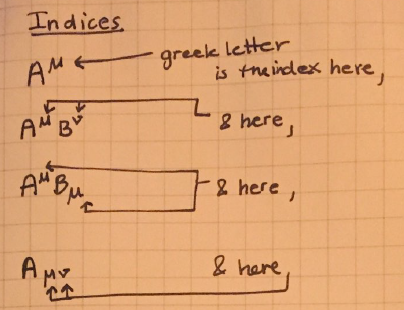 Indices
A^μ greek letter
is the index here,
A^μ B^ν & here,
A^μ B_μ & here,
A_μν & here,